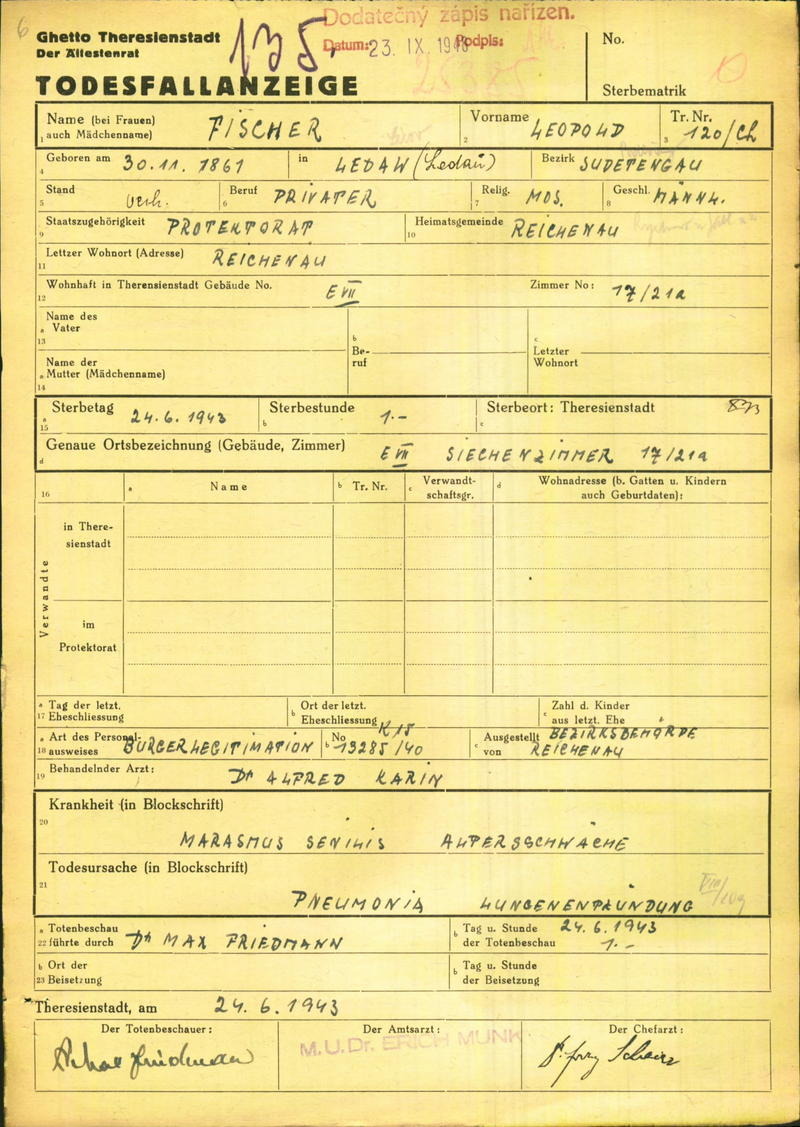 Dodatečný zápis nařízen.
Datum: 23. IX. 194 Podpis:
Ghetto Theresienstadt
Der Ältestenrat
135
No.
TODESFALLANZEIGE
Sterbematrik
Name (bei Frauen) FISCHER Vorname LEOPOLD Tr. Nr.
1 auch Mädchenname) 2 3 120/Ch
Geboren am 30.11.1861 in LEDAU (Ledau) Bezirk SUDETENGAU
4
Stand verh. Beruf PRIVATER Relig. MOS. Geschl. MÄNNL.
5 6 7 8
Staatszugehörigkeit PROTEKTORAT Heimatsgemeinde REICHENAU
9 10
Lettzer Wohnort (Adresse) REICHENAU
11
Wohnhaft in Therensienstadt Gebäude No. E VII Zimmer No: 17/21a
12
Name des
a Vater
13
b
Be-
ruf
c
Letzter
Wohnort
Name der
a Mutter (Mädchenname)
14
Sterbetag 24.6.1943 Sterbestunde 1.- Sterbeort: Theresienstadt
a 15 b c
Genaue Ortsbezeichnung (Gebäude, Zimmer) E VII SIECHENZIMMER 17/21a
d
16 a Name b Tr. Nr. c Verwandt-schaftsgr. d Wohnadresse (b. Gatten u. Kindern
auch Geburtdaten):
Verwandte
in There-
sienstadt
im
Protektorat
a Tag der letzt. b Ort der letzt. c Zahl d. Kinder
17 Eheschliessung Eheschliessung aus letzt. Ehe
a Art des Personal- No K/15 Ausgestellt BEZIRKSBEHÖRDE
18 ausweises BÜRGERLEGITIMATION b 13285/40 c von REICHENAU
Behandelnder Arzt: Dr ALFRED KARIN
19
Krankheit (in Blockschrift)
20
MARASMUS SENILIS ALTERSSCHWÄCHE
Todesursache (in Blockschrift)
21
PNEUMONIA LUNGENENTZÜNDUNG
a Totenbeschau Dr MAX FRIEDMANN b Tag u. Stunde 24.6.1943
22 führte durch der Totenbeschau 1.-
b Ort der b Tag u. Stunde
23 Beisetzung der Beisetzung
Theresienstadt, am 24.6.1943
Der Totenbeschauer: Der Amtsarzt: Der Chefarzt:
M.U.Dr. ERICH MUNK